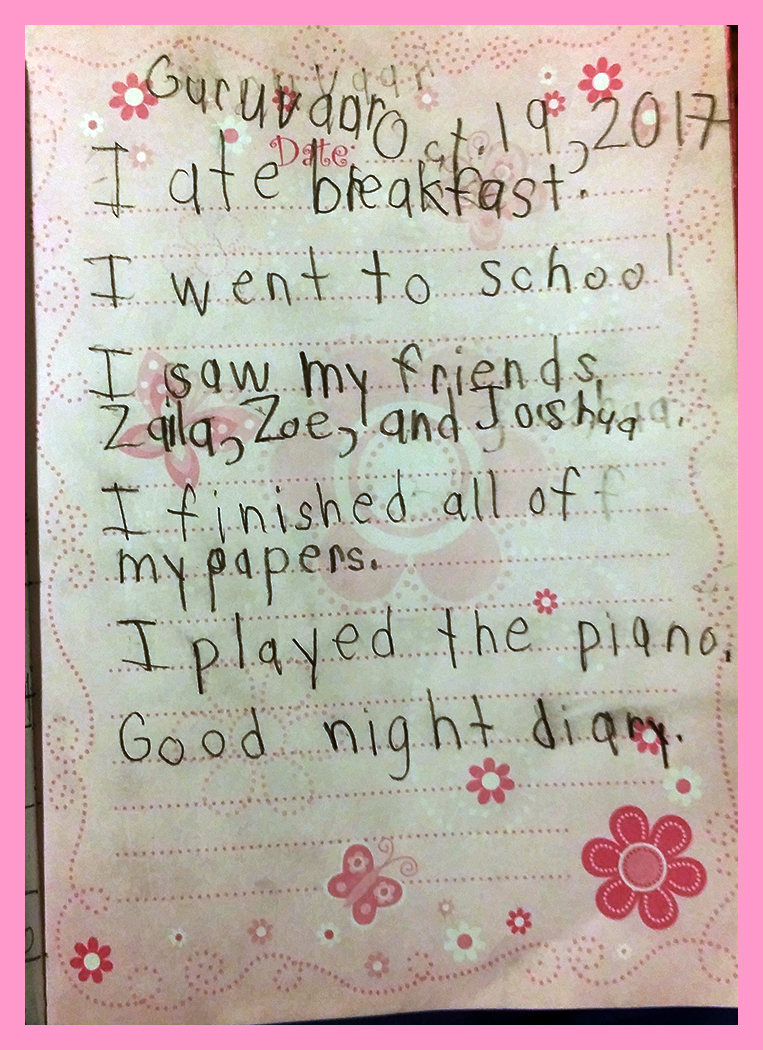 Guruvaar Oct. 19, 2017
Date:
I ate breakfast.
I went to school
I saw my friends,
Zaila, Zoe, and Joshua.
I finished all of
my papers.
I played the piano.
Good night diary.